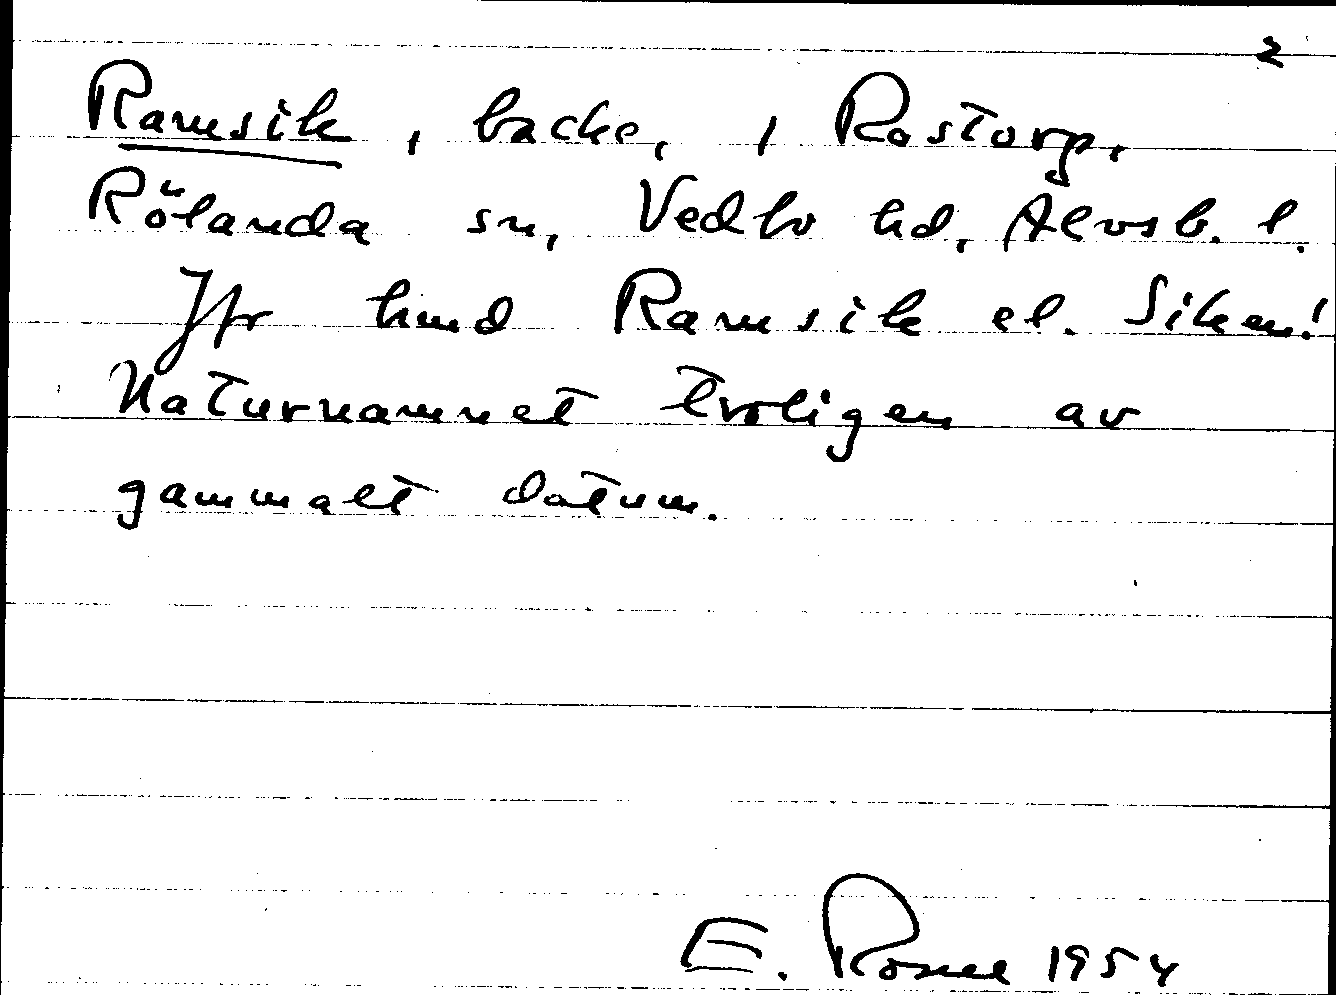 2
Ramsik, backe, i Rostorp,
Rölanda sn, Vedbo hd, Älvsb. l.
Jfr hmd Ramsik el. Siken!
Naturnamnet troligen av
gammalt datum.
E. 1954